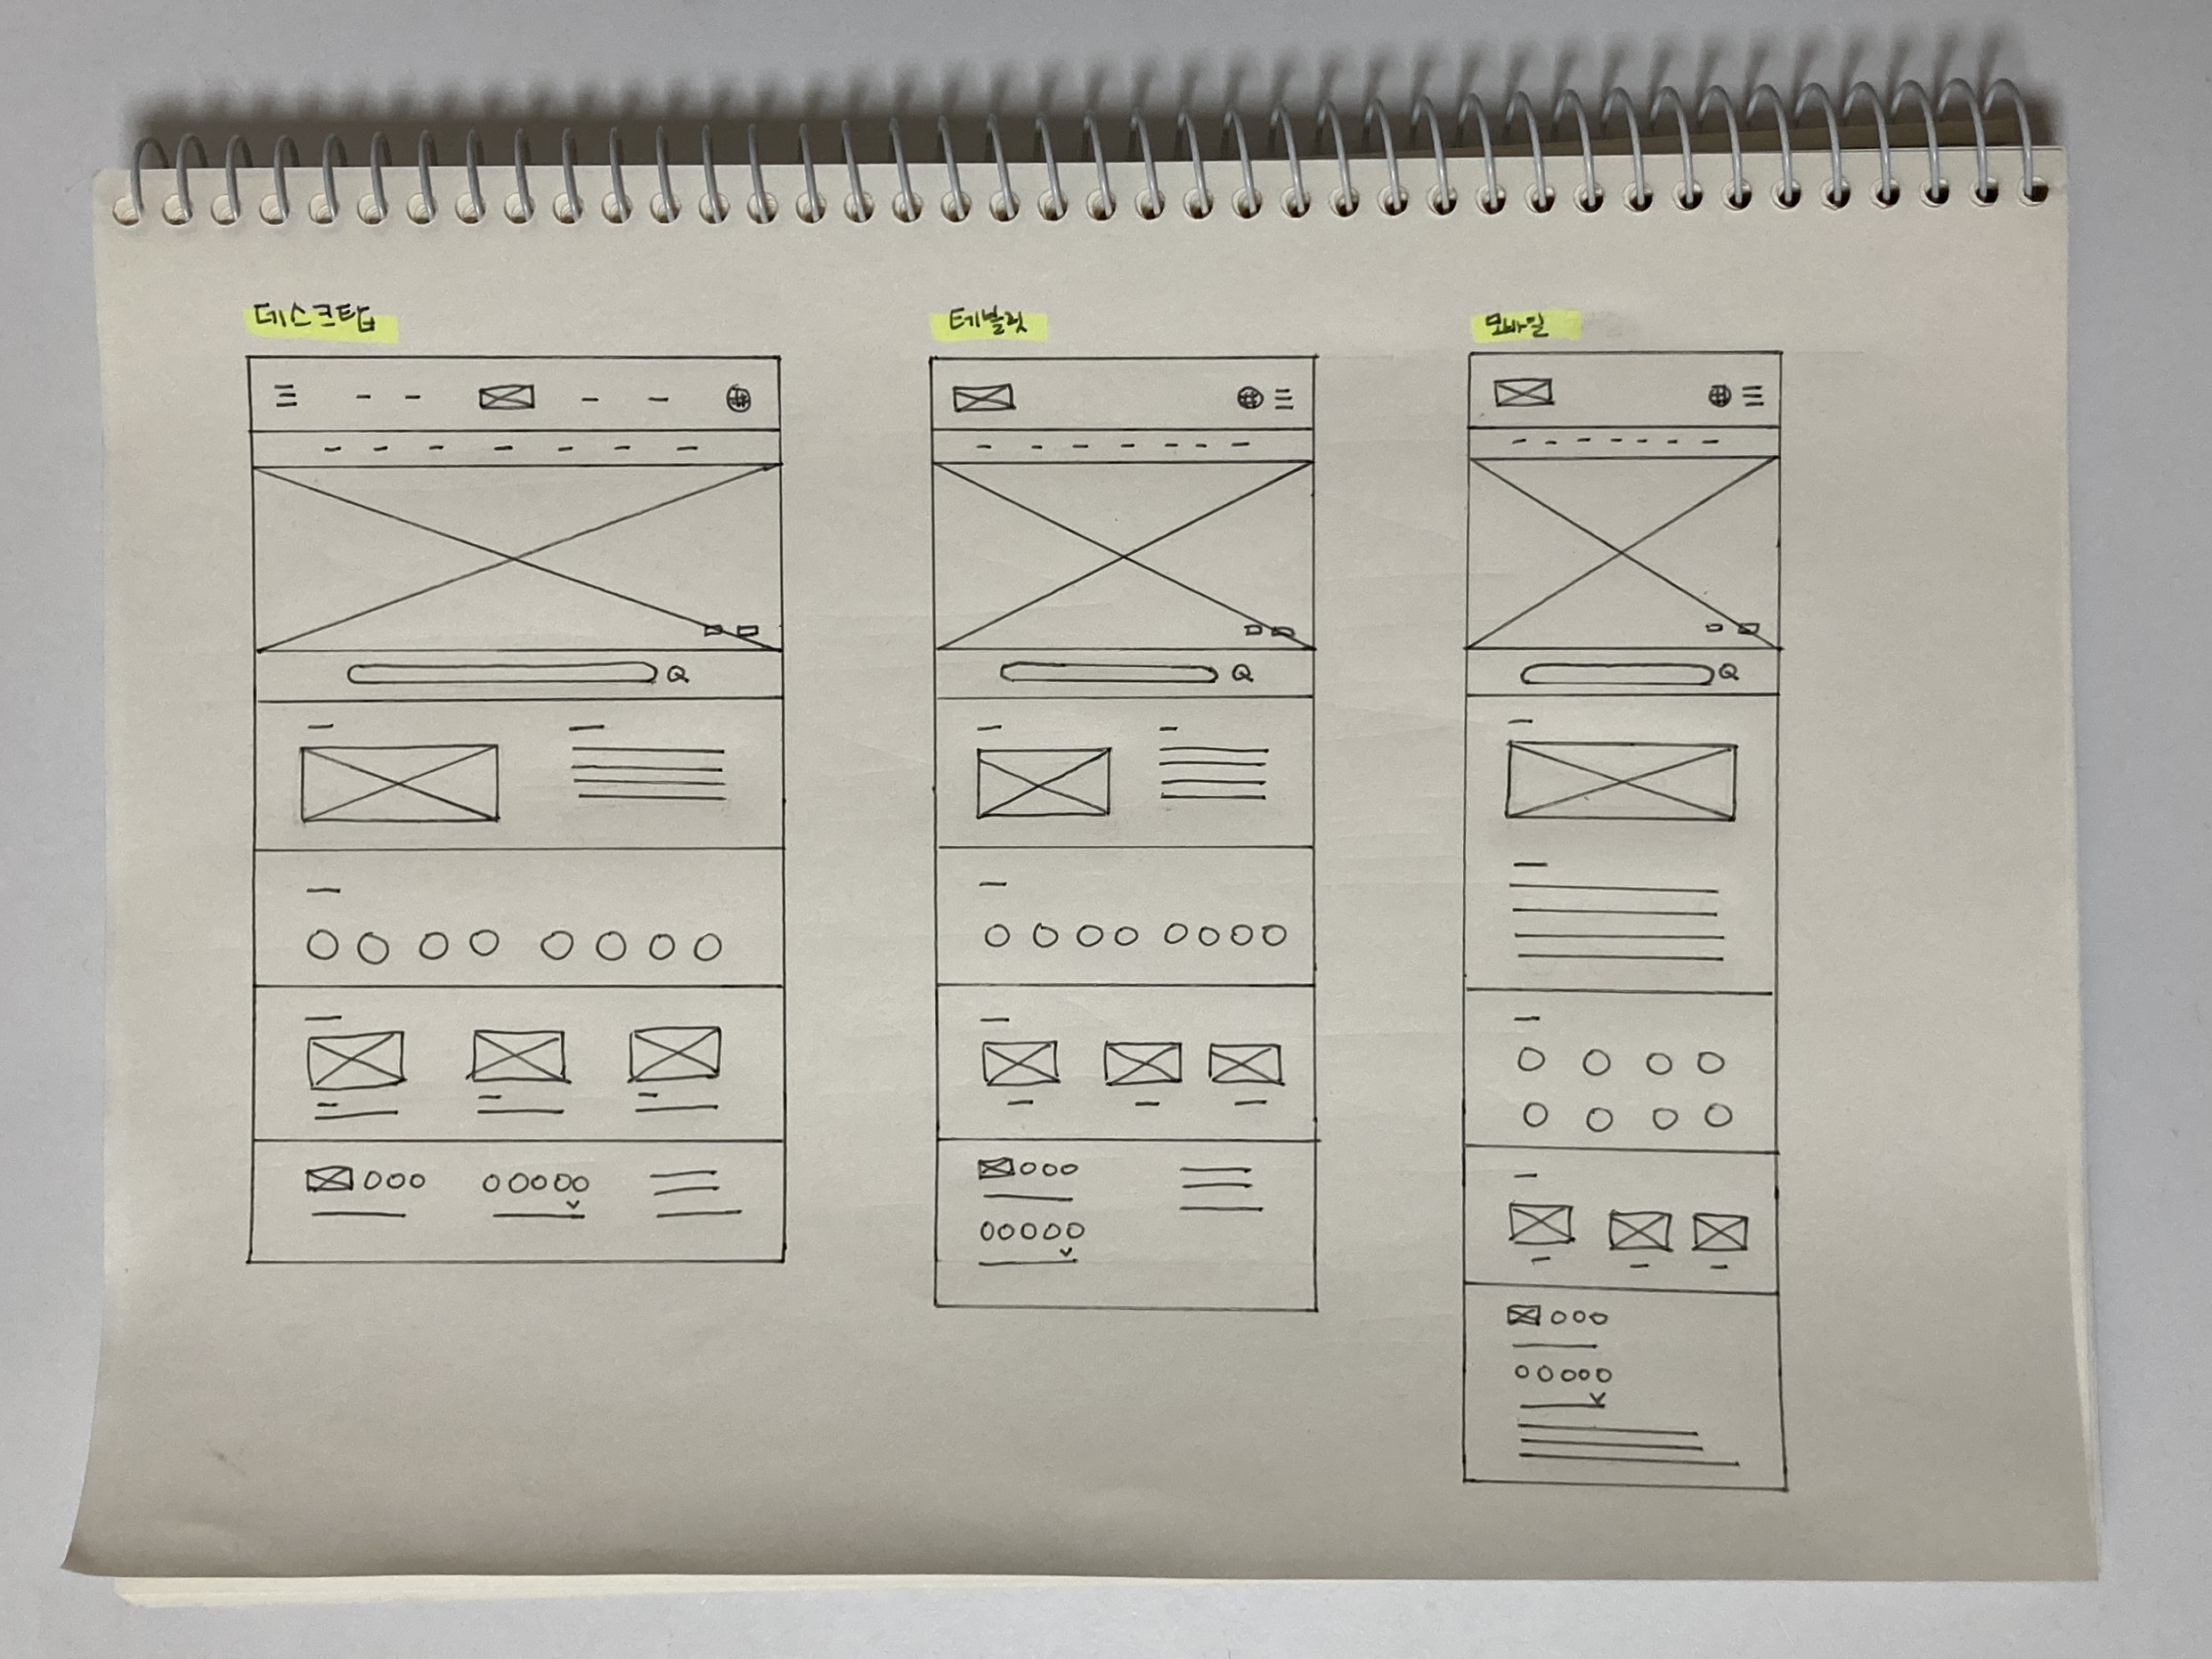 데스크탑
테블릿
모바일